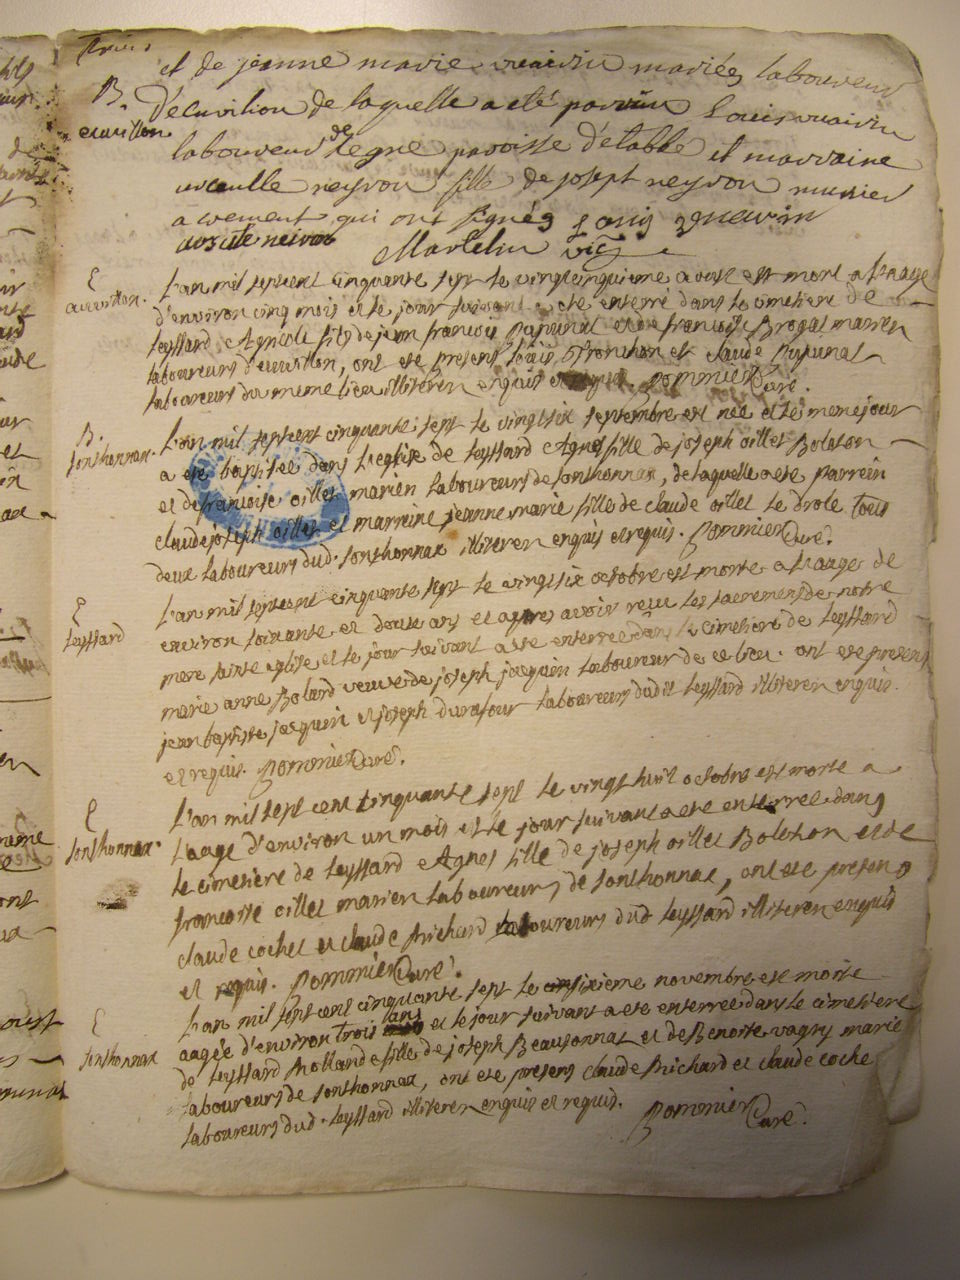 et de jeanne marie vuaivin mariés laboureur
B.
cuvillon
d'écuvilion de laquelle a eté parrain Louis vuaivin
laboureur de legne paroisse d'étable et marraine
neyron fille de joseph neyron munier
a cement qui ont signés Louis
Martelin vic
E
cuvillon.
L'an mil sept cent cinquante sept le vingtcinquieme aoust est mort a l'aage
d'environ cinq mois et le jour suivant a ete enterré dans le cimetiere de
Leyssard Agnicole fils de jean francois pupunat et de francoise Brogat marien
laboureurs d'cuvillon, ont ete presens louis tronchon et claude pupunat
laboureurs du meme lieu illiteren enquis et requis. pommier Curé.
B.
sonthonnax.
L'an mil sept cent cinquante sept le vingt six septembre est née et le meme jour
a ete baptisée dans l'eglise de Leyssard Agnes fille de joseph oillet Boloson
et de francoise oillet marien laboureurs de sonthonnax, de laquelle a ete parrein
claude joseph oillet et marreine jeanne marie fille de claude oillet le drole tous
deux laboureurs dud. sonthonnax illiteren enquis et requis. pommier Curé.
E
Leyssard
L'an mil sept cent cinquante sept le vingt six octobre est morte a l'aage de
environ soixante et douse ans et apres avoir reçu les sacremens de notre
mere sainte eglise et le jour suivant a ete enterrée dans le cimetiere de Leyssard
marie anne Bolard veuve de joseph jacquin laboureur de ce lieu. ont ete presens
jean baptiste jacquin et joseph durafour laboureurs dudit Leyssard illiteren enquis
et requis. pommier Curé.
E
sonthonnax.
L'an mil sept cent cinquante sept le vingt huit octobre est morte a
l'aage d'environ un mois et le jour suivant a ete enterrée dans
le cimetiere de Leyssard Agnes fille de joseph oillet Bolozon et de
francoise oillet marien laboureurs de sonthonnax, ont ete presens
claude cochet et claude Richard laboureurs dud Leyssard illiteren enquis
et requis. pommier Curé.
E
sonthonnax
L'an mil sept cent cinquante sept le sixieme novembre est morte
aagée d'environ trois ans et le jour suivant a ete enterrée dans le cimetiere
de Leyssard Rollande fille de joseph Beausonnat et de Benoite vagry marie
laboureurs de sonthonnax, ont ete presens claude Richard et claude coche
laboureurs dud. Leyssard illiteren enquis et requis. pommier
Curé.